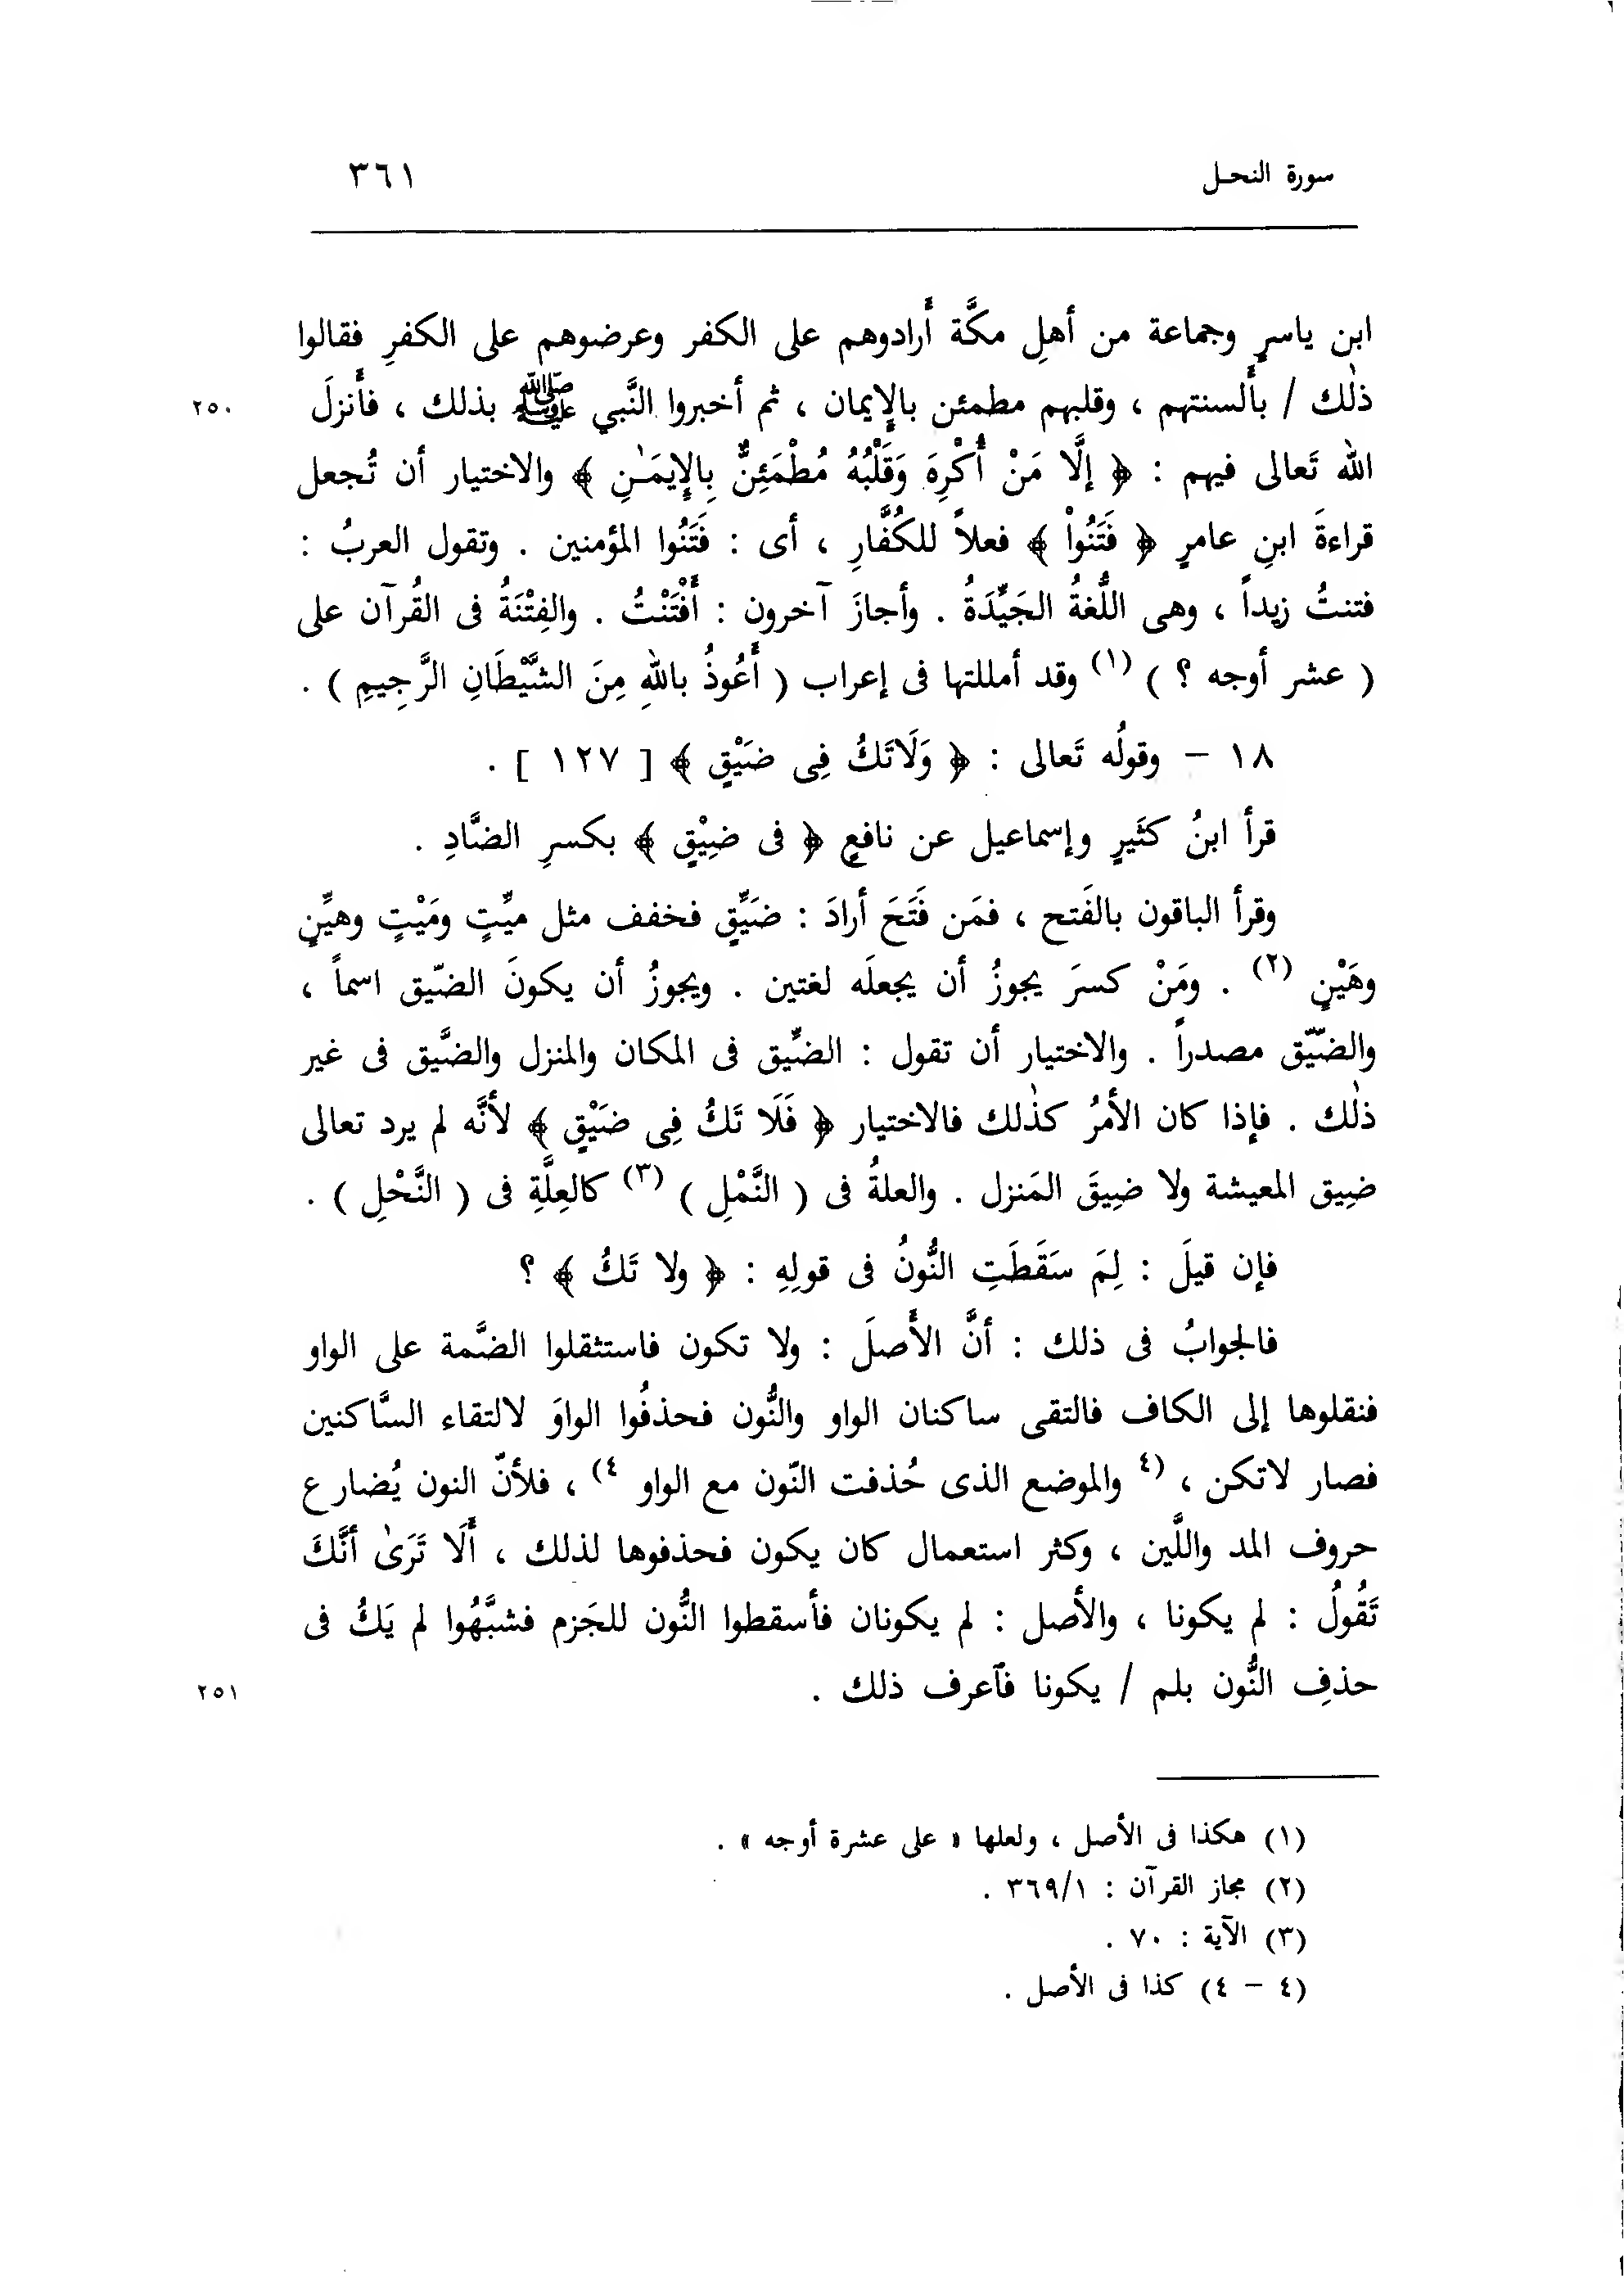 سورة النحل ٣٦١
ابن ياسرٍ وجماعة من أهلِ مكَّة أَرادوهم على الكفر وعرضوهم على الكفرِ فقالوا
ذٰلك / بأَلسنتهم ، وقلبهم مطمئن بالإِيمان ، ثم أخبروا النَّبي ﷺ بذلك ، فأَنزلَ ٢٥٠
الله تَعالى فيهم : ﴿ إلَّا مَنْ أُكْرِهَ وَقَلْبُهُ مُطْمَئِنٌّ بِالإِيمَـٰنِ ﴾ والاختيار أن تُجعل
قراءةَ ابنِ عامرٍ ﴿ فَتَنُواْ ﴾ فعلاً للكُفَّارِ ، أى : فَتَنُوا المؤمنين . وتقول العربُ :
فتنتُ زيداً ، وهى اللُّغةُ الجَيِّدَةُ . وأجازَ آخرون : أَفْتَنْتُ . والفِتْنَةُ فى القُرآن على
( عشر أوجه ؟ ) (١) وقد أمللتها فى إعراب ( أَعُوذُ باللهِ مِنَ الشَّيْطَانِ الرَّجِيمِ ) .
١٨ – وقولُه تَعالى : ﴿ وَلَاتَكُ فِى ضَيْقٍ ﴾ [ ١٢٧ ] .
قرأ ابنُ كثَيرٍ وإسماعيل عن نافعٍ ﴿ فى ضِيْقٍ ﴾ بكسرِ الضَّادِ .
وقرأ الباقون بالفَتح ، فمَن فَتَحَ أرادَ : ضَيِّقٍ فخفف مثل ميِّتٍ ومَيْتٍ وهيِّنٍ
وهَيْنٍ (٢) . ومَنْ كسرَ يجوزُ أن يجعلَه لغتين . ويجوزُ أن يكونَ الضيّق اسماً ،
والضيّق مصدراً . والاختيار أن تقول : الضيِّق فى المكان والمنزل والضيَّق فى غير
ذٰلك . فإذا كان الأمرُ كذٰلك فالاختيار ﴿ فَلَا تَكُ فِى ضَيْقٍ ﴾ لأنَّه لم يرد تعالى
ضِيق المعيشة ولا ضيِقَ المَنزل . والعلةُ فى ( النَّمْلِ ) (٣) كالعِلَّةِ فى ( النَّحْلِ ) .
فإن قيلَ : لِمَ سَقَطَتِ النُّونُ فى قولِهِ : ﴿ ولا تَكُ ﴾ ؟
فالجوابُ فى ذلك : أنَّ الأَصلَ : ولا تكون فاستثقلوا الضَّمة على الواو
فنقلوها إلى الكاف فالتقى ساكنان الواو والنُّون فحذفُوا الواوَ لالتقاء السَّاكنين
فصار لاتكن ، (٤ والموضع الذى حُذفت النّون مع الواو ٤) ، فلأنّ النون يُضارع
حروف المد واللَّين ، وكثر استعمال كان يكون فحذفوها لذلك ، أَلَا تَرَىٰ أنَّكَ
تَقُولُ : لم يكونا ، والأصل : لم يكونان فأسقطوا النُّون للجَزم فشبَّهُوا لم يَكُ فى
حذفِ النُّون بلم / يكونا فآعرف ذلك . ٢٥١
(١) هكذا فى الأصل ، ولعلها « على عشرة أوجه » .
(٢) مجاز القرآن : ٣٦٩/١ .
(٣) الآية : ٧٠ .
(٤ – ٤) كذا فى الأصل .